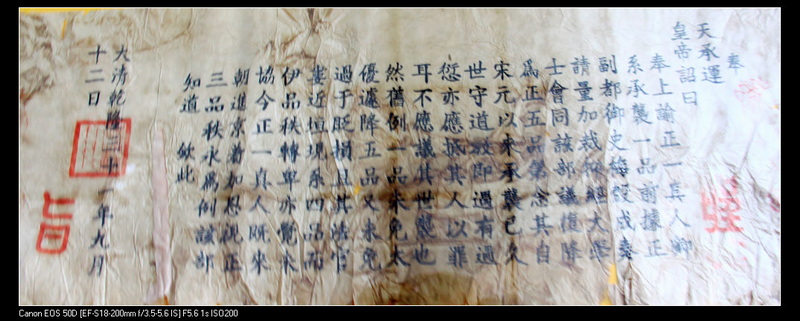 奉
天承運
皇帝詔曰
奉上諭正一真人卿
系承襲一品前據正
副都御史梅成奏
請量加裁抑經大學
士會同該部議復降
為正五品第念其自
宋元以來承襲已久
世守道教即過有過
愆亦應抵其人以罪
耳不應議其世襲也
然舊例一品未免太
優遽降五品又未免
過于貶損且其法官
婁近垣現系四品而
伊品秩轉卑亦覺未
協今正一真人既來
朝進京着加恩視正
三品秩永為例該部
知道 欽此
大清乾隆三十一年九月
十二日
旨
Canon EOS 50D [EF-S18-200mm f/3.5-5.6 IS] F5.6 1s ISO200